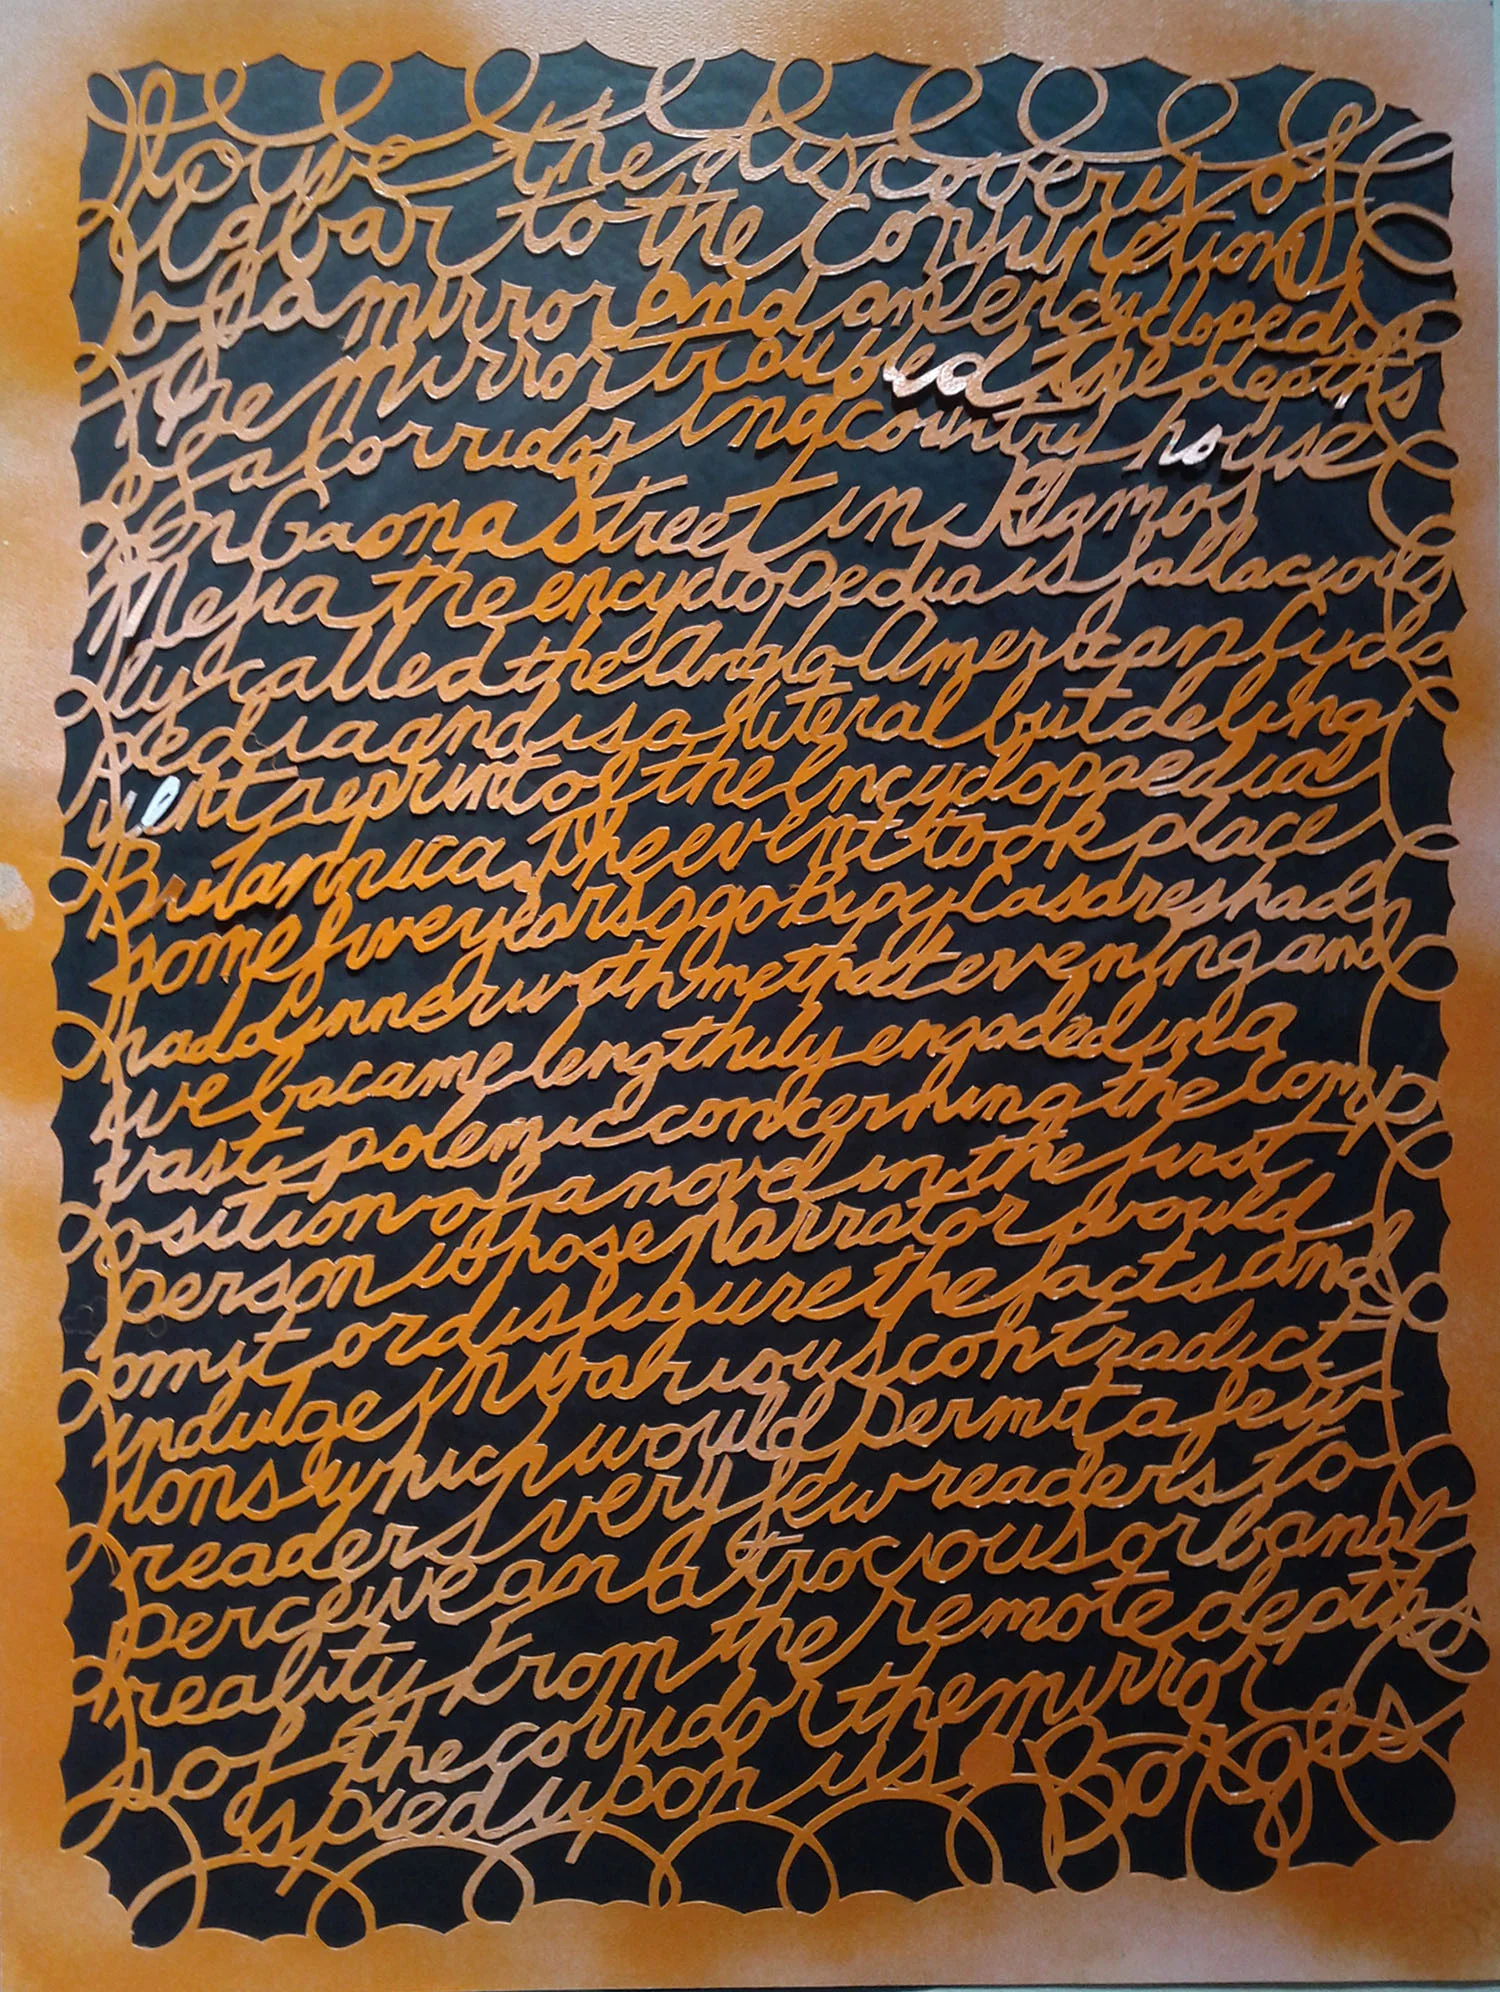 I owe the discovery of
Uqbar to the conjunction
of a mirror and an encyclopedia
The mirror troubled the depths
of a corridor in a country house
on Gaona Street in Ramos
Mejia the encyclopedia is fallacious
ly called the Anglo American Cyclo
pedia and is a literal but delinq
uent reprint of the Encyclopaedia
Britannica The event took place
some five years ago Bioy Casares had
had dinner with me that evening and
we bacame lengthily engaded in a
vast polemic concerning the comp
osition of a novel in the first
person whose narrator would
omit or disfigure the facts and
indulge in various contradict
ions which would permit a few
readers very few readers to
perceive an atrocious or banal
reality From the remote depth
s of the corridor the mirror
spied upon us Borges